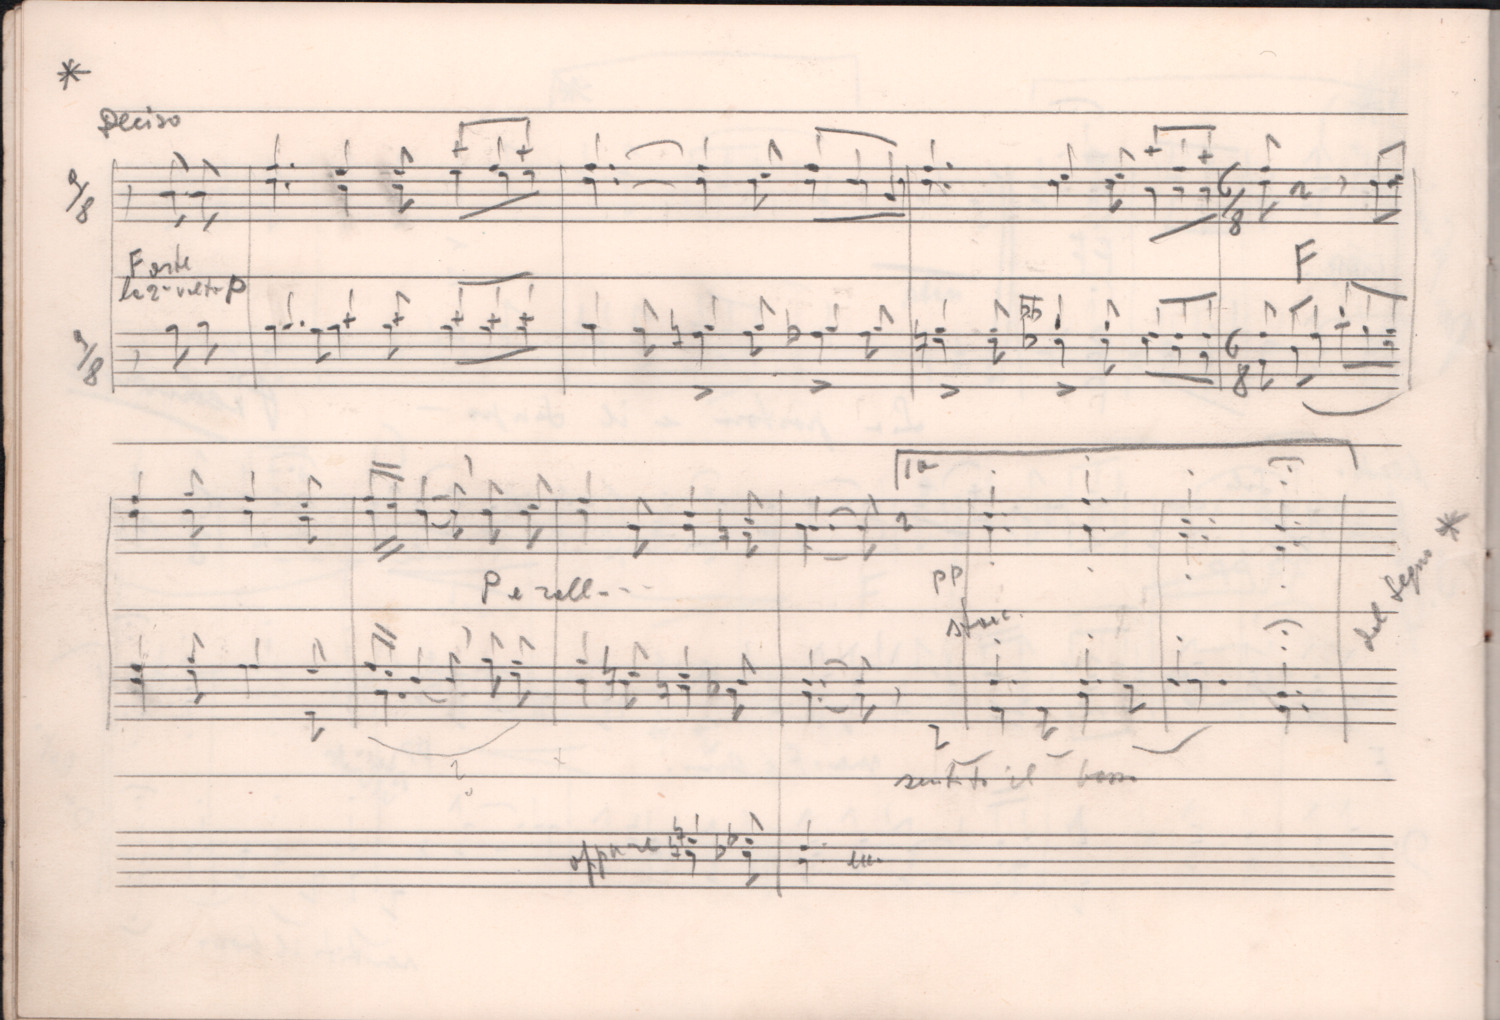 *
Deciso
9/8
Forte
la 2ª volta P
9/8
6
8
F
6
8
1a
P e rall---
pp
stacc.
dal Segno *
?
sentito il basso
oppure
ecc.